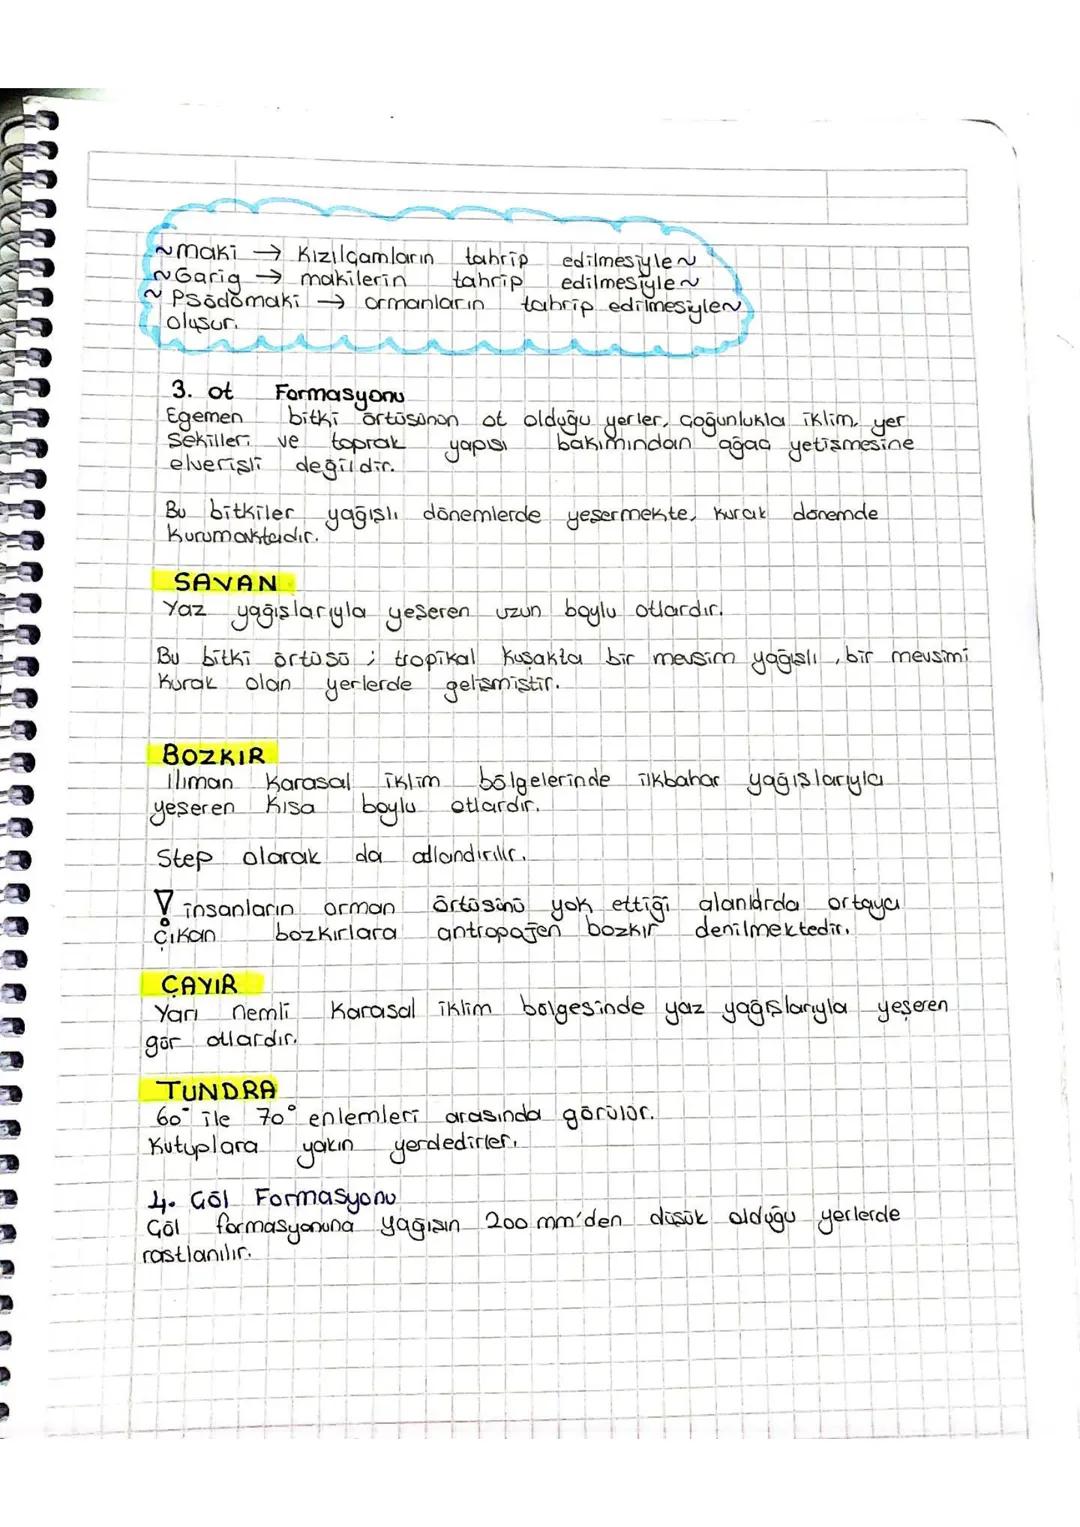 ~maki → Kızılçamların tahrip edilmesiyle~
~Garig → makilerin tahrip edilmesiyle~
~ Psödömaki → ormanların tahrip edilmesiyle~
oluşur.
3. ot Formasyonu
Egemen bitki örtüsünün ot olduğu yerler, çoğunlukla iklim, yer
şekilleri ve toprak yapısı bakımından ağaç yetişmesine
elverişli değildir.
Bu bitkiler yağışlı dönemlerde yeşermekte, kurak dönemde
kurumaktadır.
SAVAN
Yaz yağışlarıyla yeşeren uzun boylu otlardır.
Bu bitki örtüsü ; tropikal kuşakta bir mevsim yağışlı , bir mevsimi
kurak olan yerlerde gelişmiştir.
BOZKIR
Ilıman Karasal iklim bölgelerinde ilkbahar yağışlarıyla
yeşeren kısa boylu otlardır.
Step olarak da adlandırılır.
insanların orman örtüsünü yok ettiği alanlarda ortaya
çıkan bozkırlara antropojen bozkır denilmektedir.
ÇAYIR
Yarı nemli Karasal iklim bölgesinde yaz yağışlarıyla yeşeren
gür otlardır.
TUNDRA
60° ile 70° enlemleri arasında görülür.
Kutuplara yakın yerdedirler.
4. Göl Formasyonu
Göl formasyonuna yağışın 200 mm'den düşük olduğu yerlerde
rastlanılır.